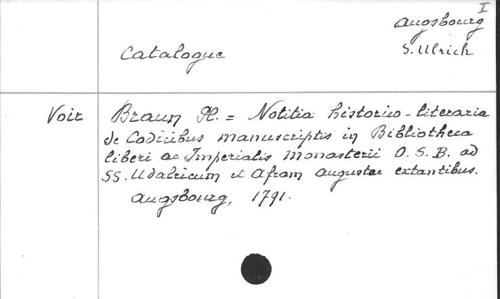 I
Augsbourg
Catalogue
S. Ulrich
Voir Braun Pl. = Notitia historico-literaria
de Codicibus manuscriptis in Bibliotheca
liberi ac Imperialis monasterii O.S.B. ad
SS. Udalricum et Afram Augustae extantibus.
Augsbourg, 1791.